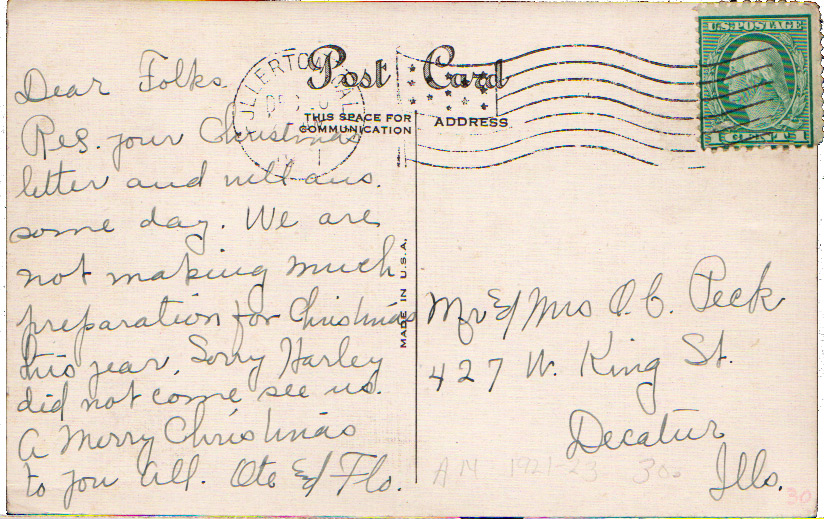 Dear Folks
Rec. your Christmas
letter and will ans.
some day. We are
not making much
preparation for Christmas
this year, Sorry Harley
did not come see us.
A Merry Christmas
to you all. Ote & Flo.
Post Card
THIS SPACE FOR
COMMUNICATION
ADDRESS
MADE IN U.S.A.
U.S. POSTAGE
Mr & Mrs O. C. Peck
427 W. King St.
Decatur
Ills.
A M 1921-23 300
30